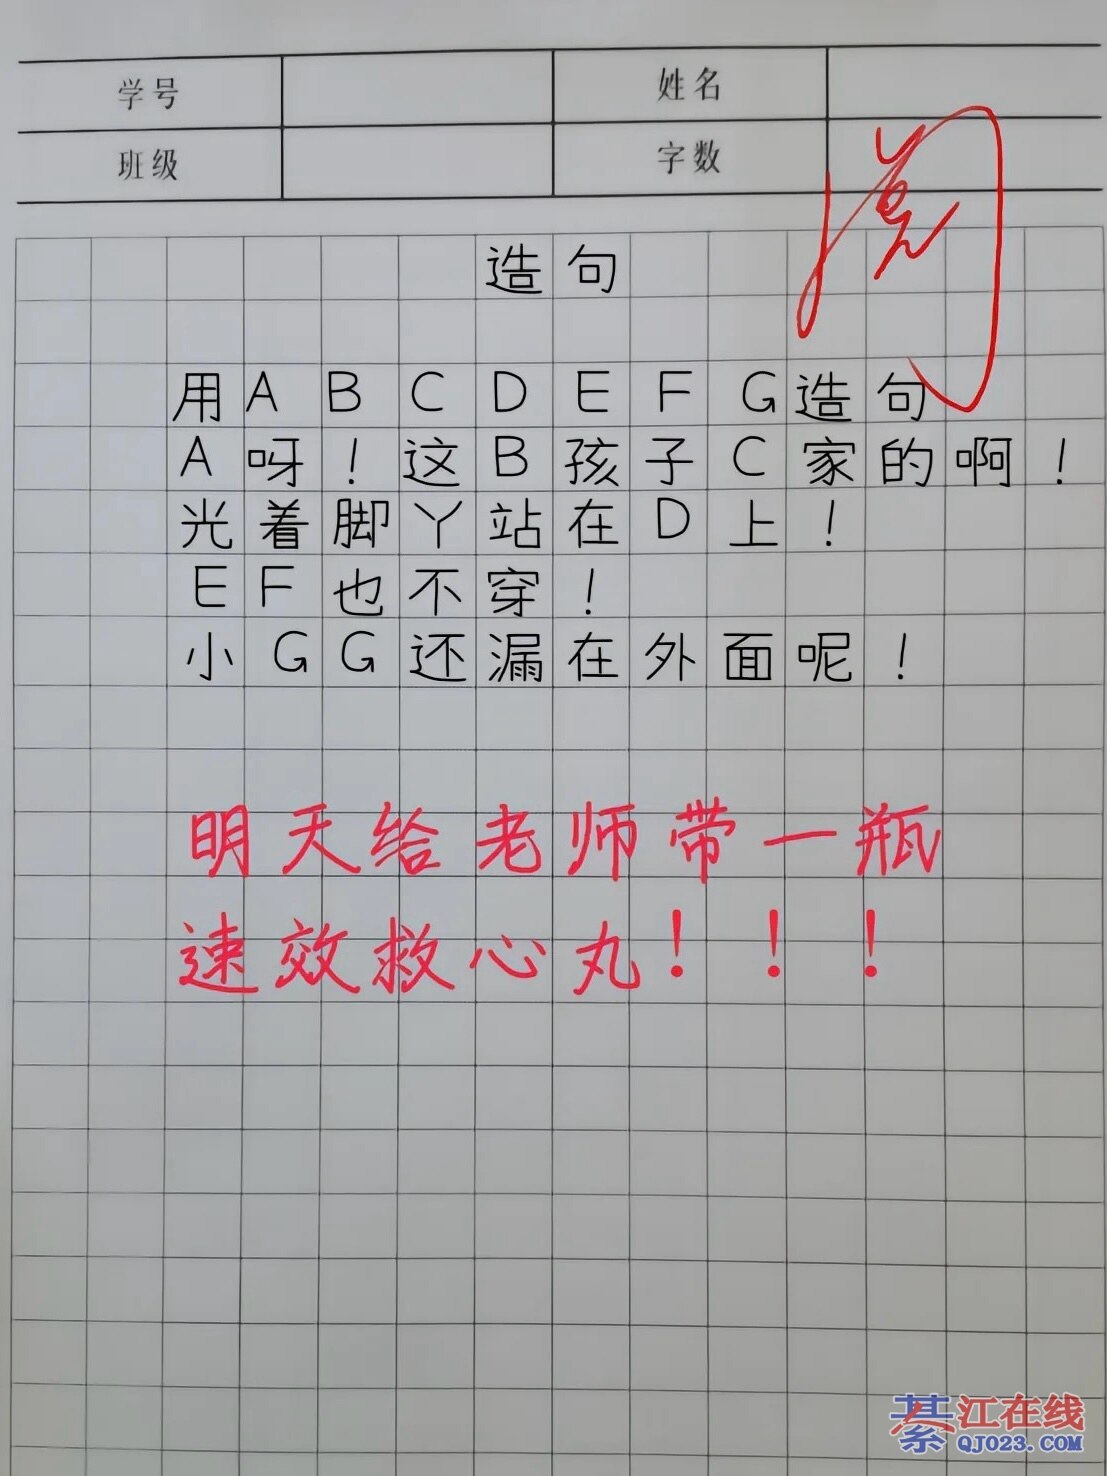 学号 姓名
班级 字数
阅
造句
用ABCDEFG造句
A呀！这B孩子C家的啊！
光着脚丫站在D上！
EF也不穿！
小GG还漏在外面呢！
明天给老师带一瓶
速效救心丸！！！
綦江在线
QJ023.COM